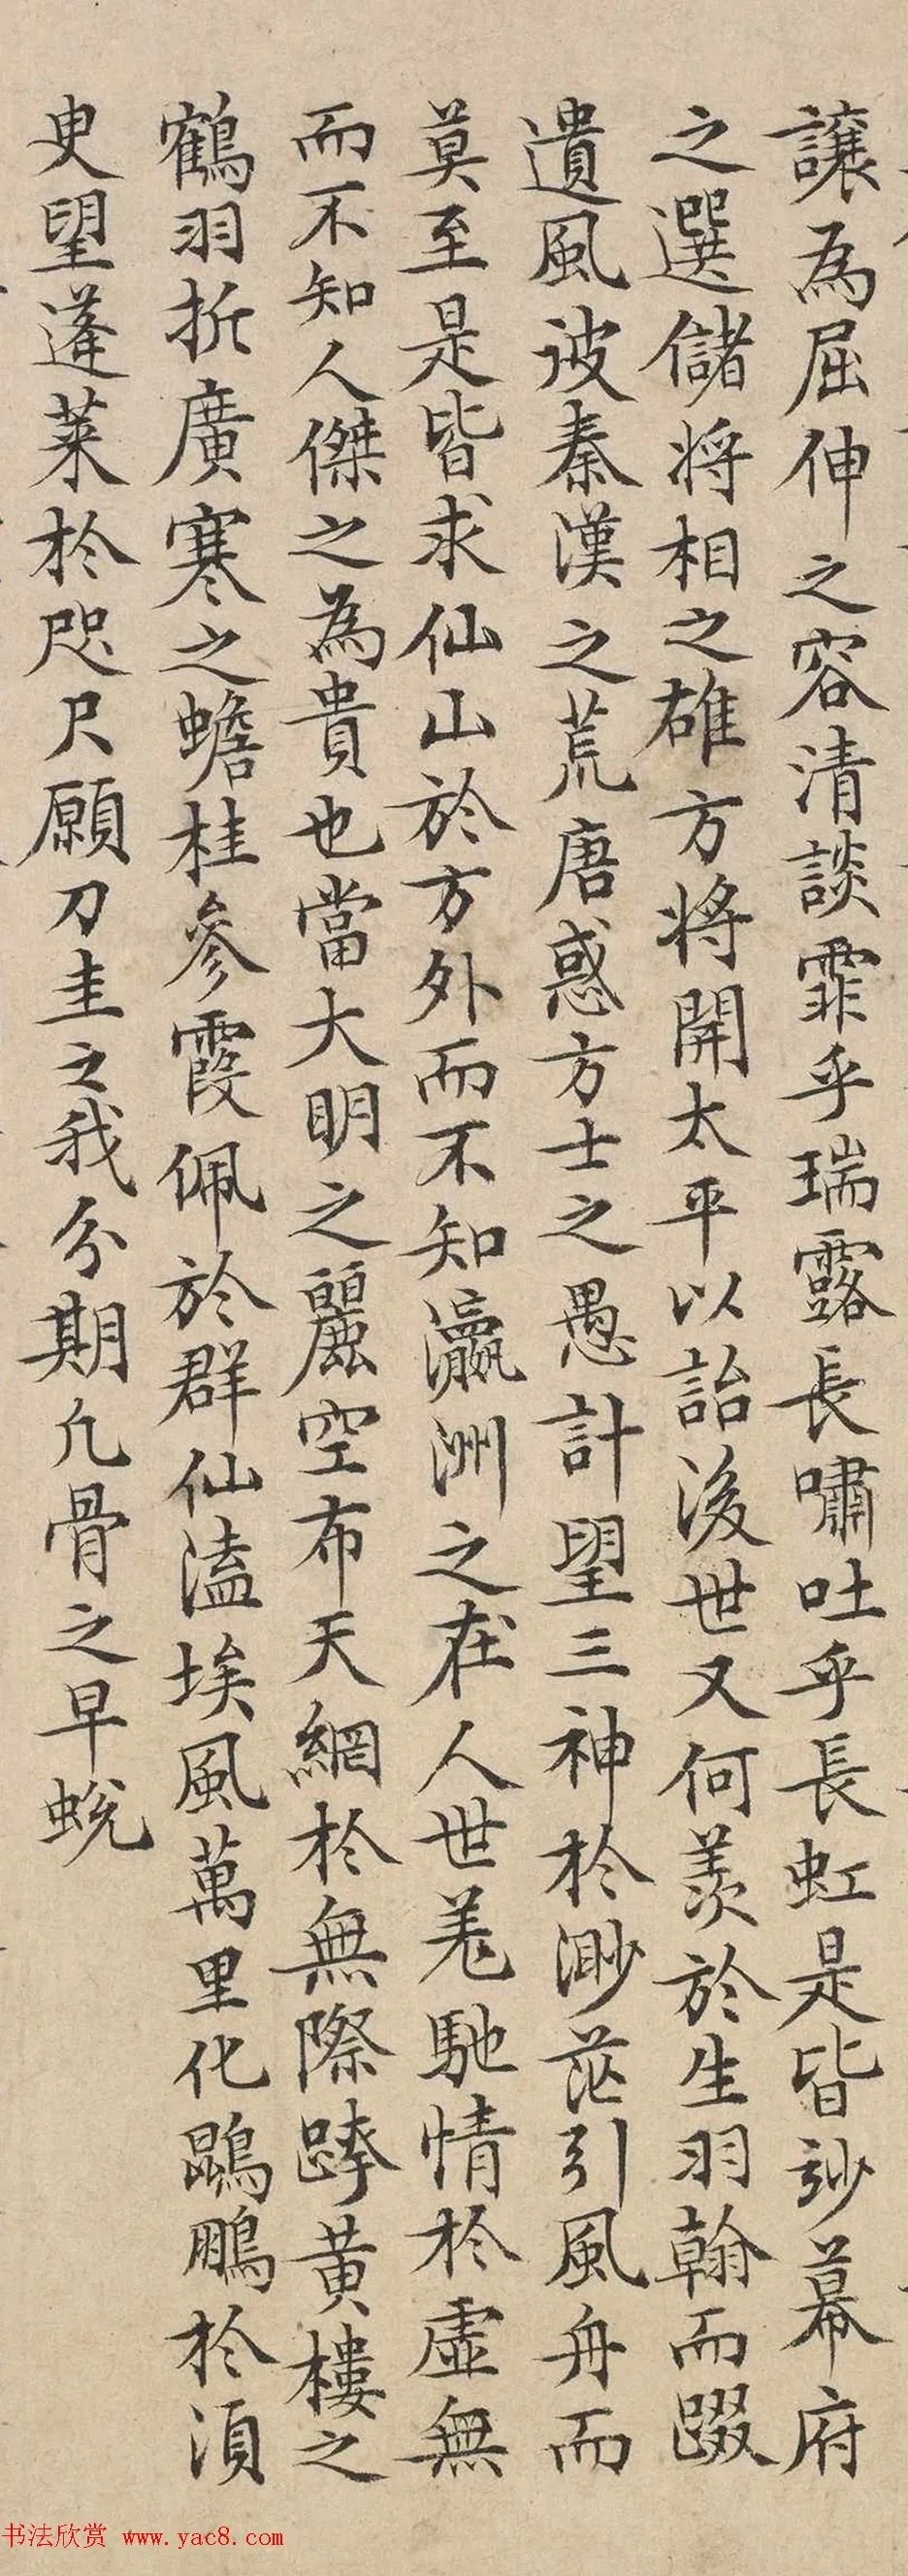 讓為屈伸之容清談霏乎瑞露長嘯吐乎長虹是皆妙幕府
之選儲將相之雄方將開太平以詒後世又何羨於生羽翰而躡
遺風彼秦漢之荒唐惑方士之愚計望三神於渺茫引風舟而
莫至是皆求仙山於方外而不知瀛洲之在人世羌馳情於虛無
而不知人傑之為貴也當大明之麗空布天網於無際跨黃樓之
鶴羽折廣寒之蟾桂參霞佩於群仙溘埃風萬里化鵾鵬於須
臾望蓬萊於咫尺願刀圭之我分期凡骨之早蛻
书法欣赏 www.yac8.com